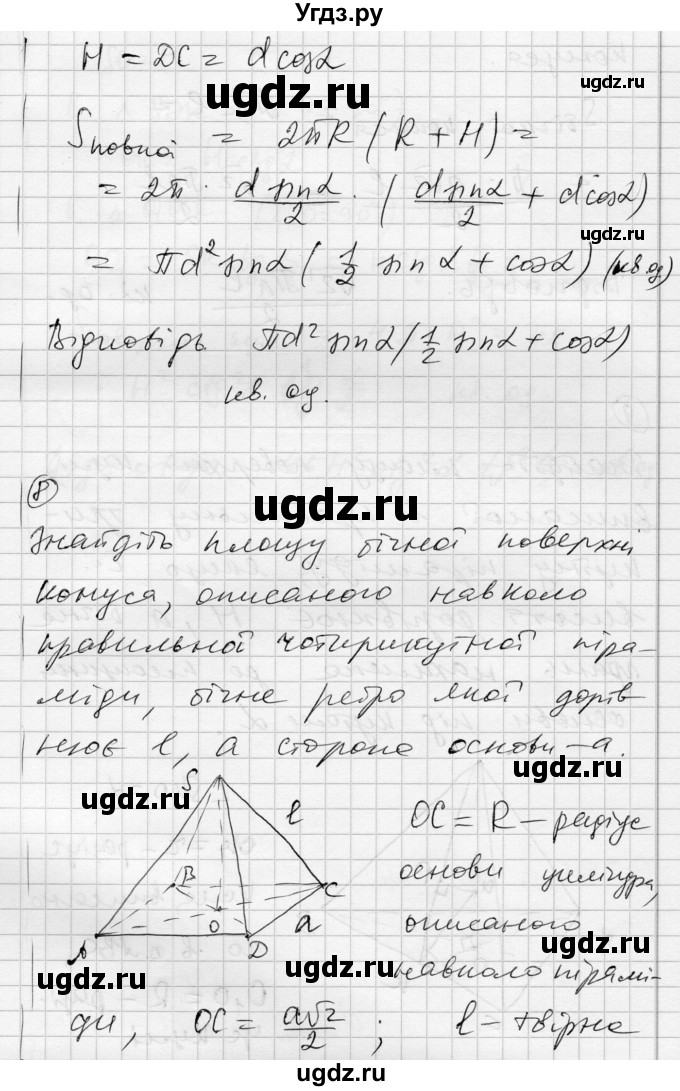 Угдз.ру
H = DC = d cosα
ugdz.ru
ugdz.ru
Sповної = 2πR (R + H) =
= 2π · d sinα/2 · (d sinα/2 + d cosα)
ugdz.ru
= πd² sinα (1/2 sinα + cosα) (кв. од)
Відповідь πd² sinα (1/2 sinα + cosα)
кв. од.
⑧
ugdz.ru
Знайдіть площу бічної поверхні
конуса, описаного навколо
правильної чотирикутної піра-
міди, бічне ребро якої дорів
нює l, а сторона основи – a.
ugdz.ru
ugdz.ru
S
l
B
C
O
a
A
D
OC = R – радіус
основи циліндра,
описаного
навколо пірамі-
ugdz.ru
ugdz.ru
ди, OC = a√2/2 ; l – твірна